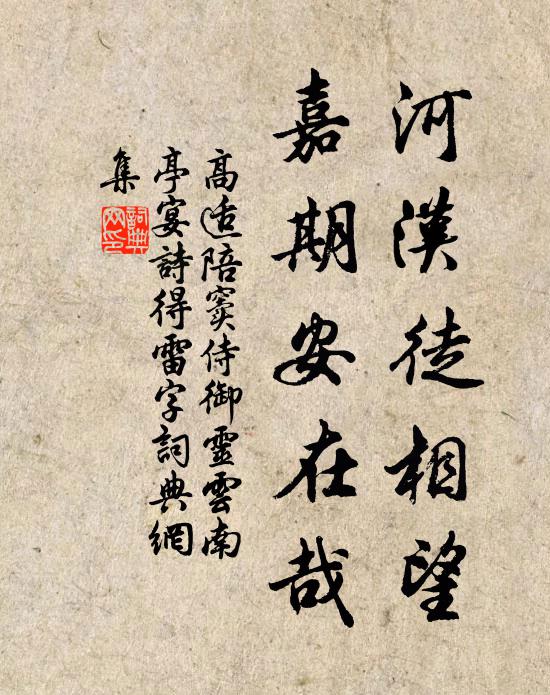 河漢徒相望
嘉期安在哉
高适陪窦侍御靈雲南
亭宴詩得雷字詞典網
集
詞典
网印